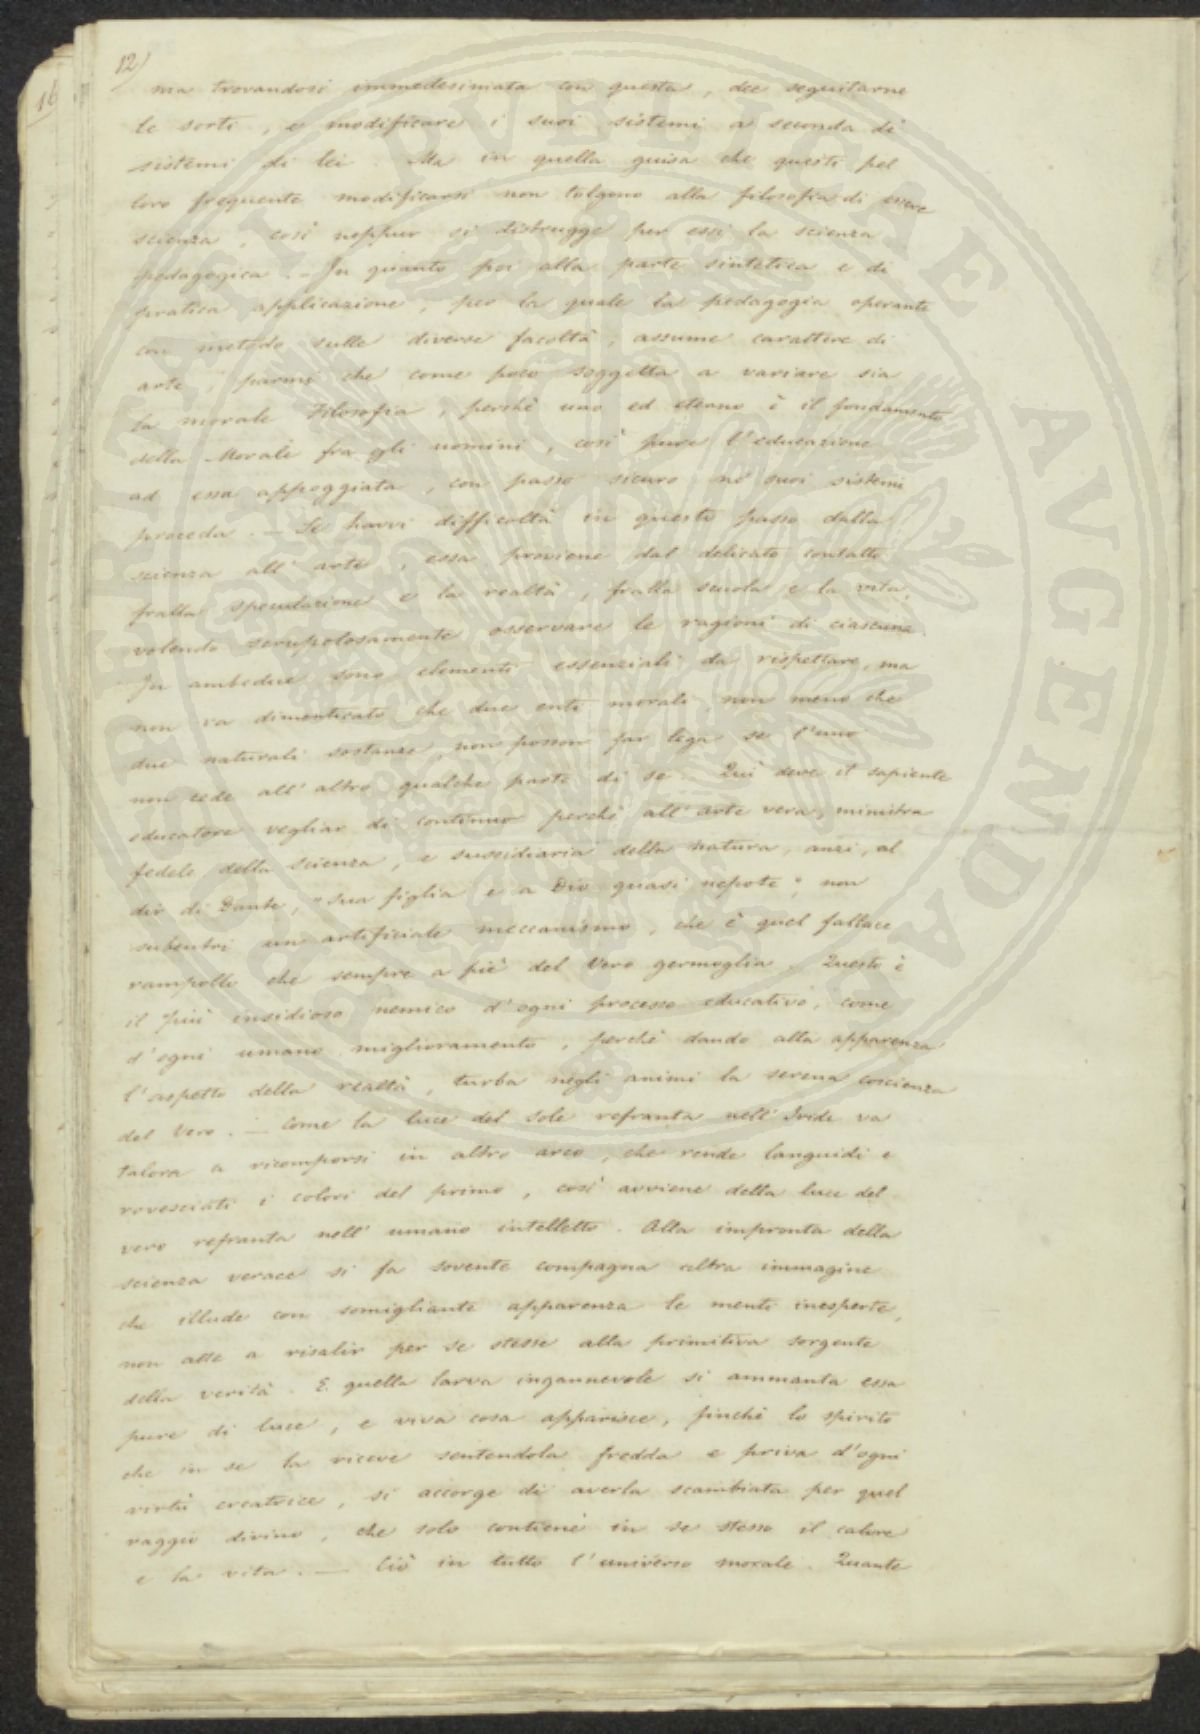 12)
ma trovandosi immedesimata con questa, dee seguitarne
le sorti, e modificare i suoi sistemi a seconda di
sistemi di lei. Ma in quella guisa che questi pel
loro frequente modificarsi non tolgono alla filosofia di essere
scienza, così neppur si distrugge per essi la scienza
pedagogica. - In quanto poi alla parte sintetica e di
pratica applicazione, per la quale la pedagogia operante
con metodo sulle diverse facoltà, assume carattere di
arte, parmi che come poco soggetta a variare sia
la morale Filosofia, perchè uno ed eterno è il fondamento
della Morale fra gli uomini, così pure l'educazione
ad essa appoggiata, con passo sicuro ne' suoi sistemi
proceda. — Se havvi difficoltà in questo passo dalla
scienza all'arte, essa proviene dal delicato contatto
fralla speculazione e la realtà, fralla scuola e la vita,
volendo scrupolosamente osservare le ragioni di ciascuna.
In ambedue sono elementi essenziali da rispettare, ma
non va dimenticato che due enti morali, non meno che
due naturali sostanze, non posson far lega se l'uno
non cede all'altro qualche parte di se. Quì deve il sapiente
educatore vegliar di continuo perchè all'arte vera, ministra
fedele della scienza, e sussidiaria della natura, anzi, al
dir di Dante, "sua figlia e a Dio quasi nepote", non
subentri un artificiale meccanismo, che è quel fallace
rampollo che sempre a piè del Vero germoglia. Questo è
il più insidioso nemico d'ogni processo educativo, come
d'ogni umano miglioramento, perchè dando alla apparenza
l'aspetto della realtà, turba negli animi la serena coscienza
del Vero. — Come la luce del sole refranta nell'Iride va
talora a ricomporsi in altro arco, che rende languidi e
rovesciati i colori del primo, così avviene della luce del
vero refranta nell'umano intelletto. Alla impronta della
scienza verace si fa sovente compagna altra immagine
che illude con somigliante apparenza le menti inesperte,
non atte a risalir per se stesse alla primitiva sorgente
della verità. E quella larva ingannevole si ammanta essa
pure di luce, e viva cosa apparisce, finchè lo spirito
che in se la riceve sentendola fredda e priva d'ogni
virtù creatrice, si accorge di averla scambiata per quel
raggio divino, che solo contiene in se stesso il calore
e la vita. — Ciò in tutto l'universo morale. Quante
16
PROSPERITATI PVBLICAE AVGENDAE